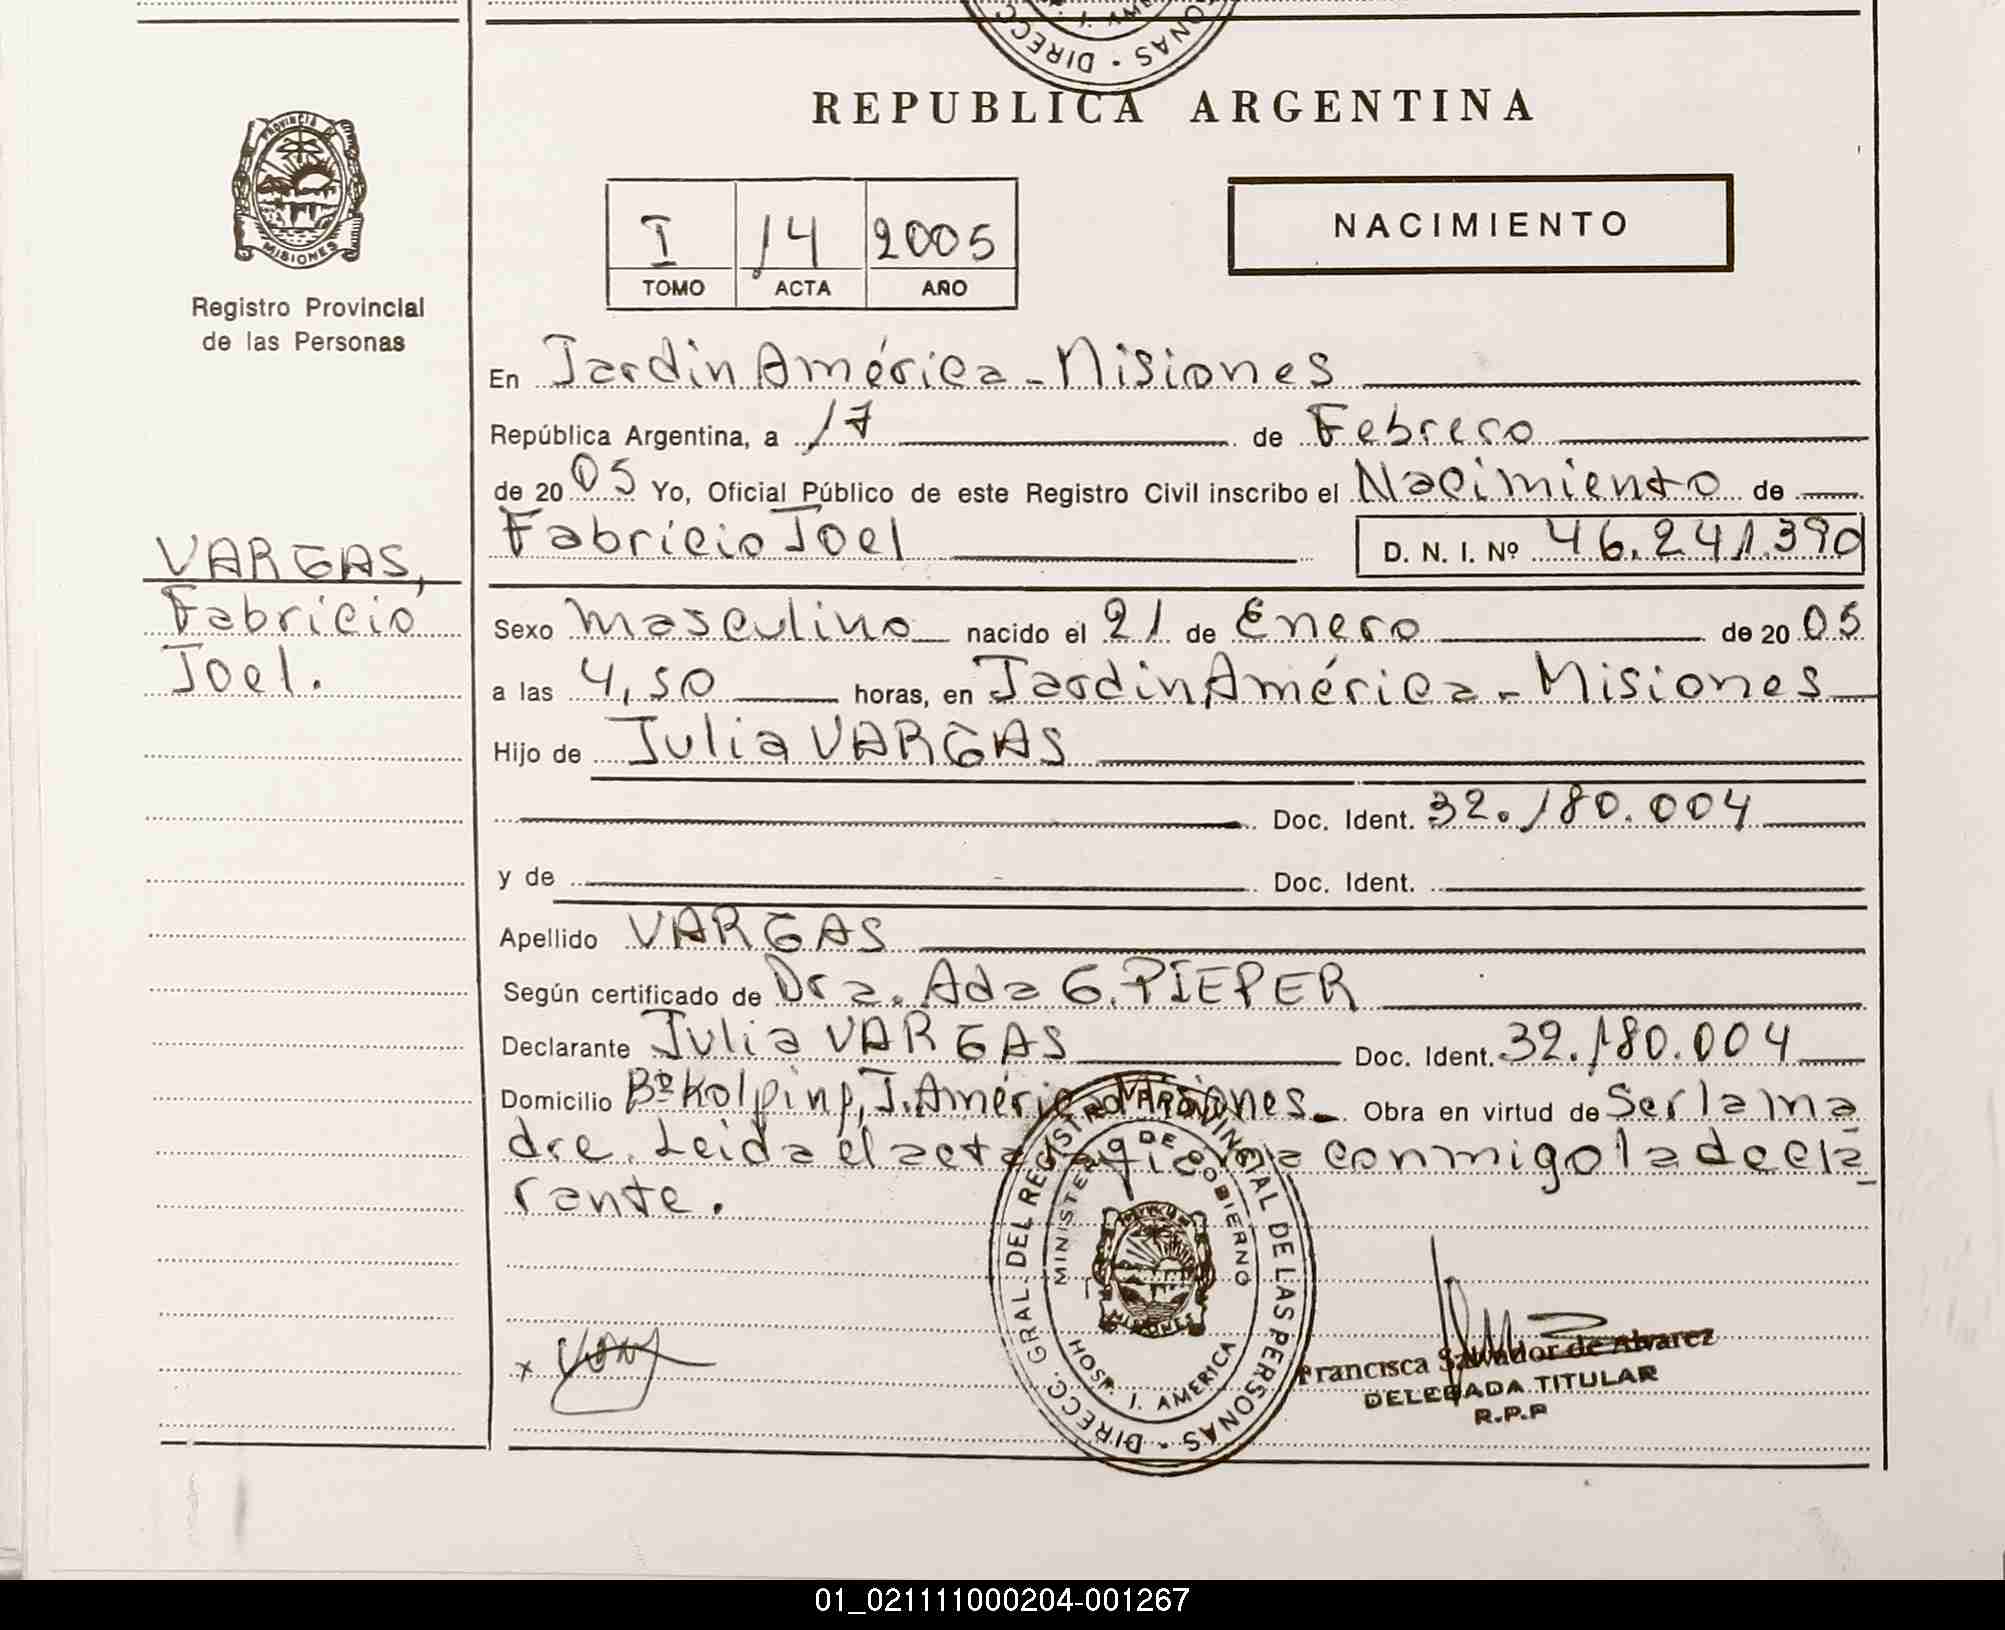 DIRECC. · PERSONAS · J. AMERICA
REPUBLICA ARGENTINA
PROVINCIA DE MISIONES
Registro Provincial
de las Personas
NACIMIENTO
I 14 2005
TOMO ACTA AÑO
En Jardin América - Misiones
República Argentina, a 17 de Febrero
de 2005 Yo, Oficial Público de este Registro Civil inscribo el Nacimiento de
Fabricio Joel D. N. I. Nº 46.241.390
VARGAS,
Fabricio
Joel.
Sexo masculino nacido el 21 de Enero de 2005
a las 4,50 horas, en Jardin América - Misiones
Hijo de Julia VARGAS
Doc. Ident. 32.180.004
y de Doc. Ident.
Apellido VARGAS
Según certificado de Dra. Ada G. PIEPER
Declarante Julia VARGAS Doc. Ident. 32.180.004
Domicilio Bº Kolping, J. América Misiones - Obra en virtud de Ser la ma
dre. Leida el acta firma conmigo la decla
rante.
DIRECC. GRAL. DEL REGISTRO PROVINCIAL DE LAS PERSONAS ·
MINISTERIO DE GOBIERNO
MISIONES
HOSP. J. AMERICA
Francisca Salvador de Alvarez
DELEGADA TITULAR
R.P.P
01_021111000204-001267